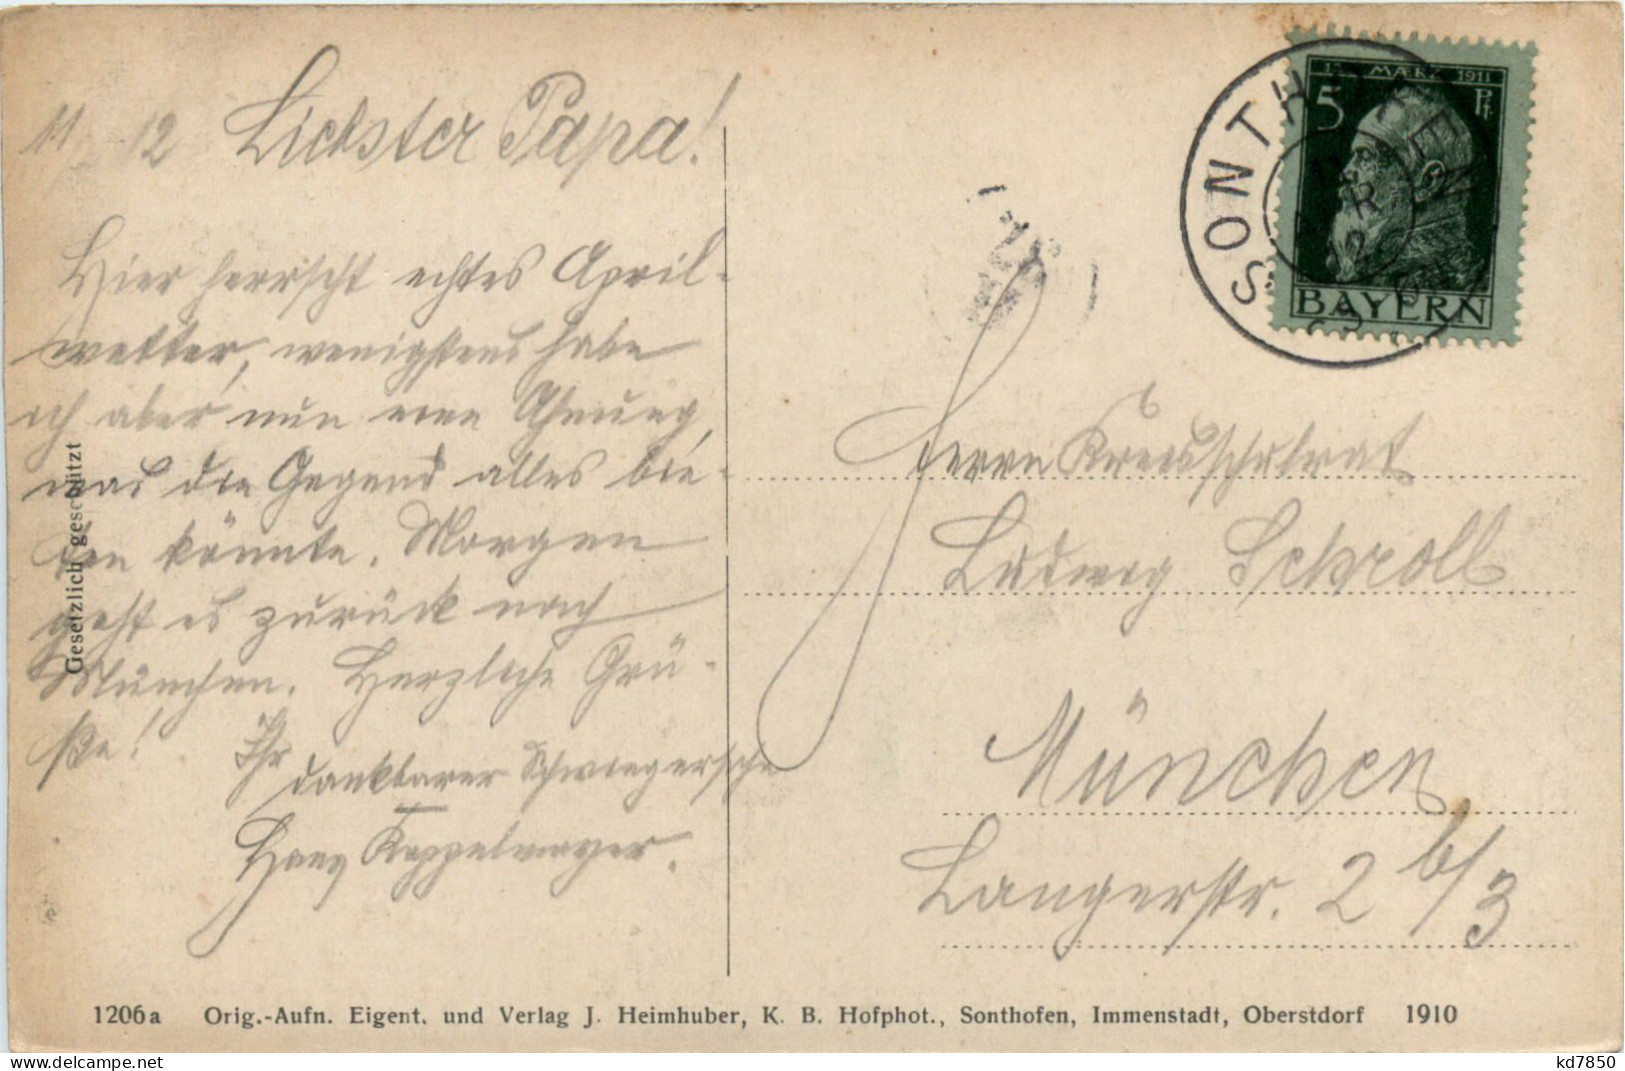 11/ 12 Liebster Papa!
Hier herrscht echtes April-
wetter, wenigstens habe
ich aber nun eine Ahnung,
was die Gegend alles bie-
ten könnte. Morgen
geht es zurück nach
München. Herzliche Grü-
ße! Ihr
dankbarer Schwiegersohn
Hans Koppelmayer.
Gesetzlich geschützt
SONTHOFEN
12 MÄRZ 1911
5 Pf
BAYERN
Herrn Kreisschulrat
Ludwig Schroll
München
Langerstr. 2 b/3
1206a Orig.-Aufn. Eigent. und Verlag J. Heimhuber, K. B. Hofphot., Sonthofen, Immenstadt, Oberstdorf 1910
kd7850